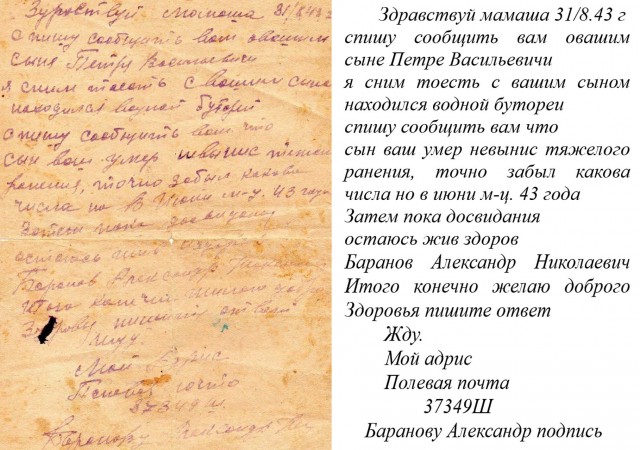 Здравствуй мамаша 31/8.43 г
спишу сообщить вам овашим
сыне Петря Василевичи
я сним тоесть с вашим сыном
находился водной бутореи
спишу сообщить вам что
сын ваш умер невынис тяжелого
ранения, точно забыл какова
числа но в Июни м-ц. 43 года
Затем пока досвидания
остаюсь жив здоров
Баранов Александр Николаевич
Итого конечно желаю доброго
Здоровья пишите ответ
жду.
Мой Адрис
Полевая почта
37349ш.
Баранову Александр
Здравствуй мамаша 31/8.43 г
спишу сообщить вам овашим
сыне Петре Васильевичи
я сним тоесть с вашим сыном
находился водной бутореи
спишу сообщить вам что
сын ваш умер невынис тяжелого
ранения, точно забыл какова
числа но в июни м-ц. 43 года
Затем пока досвидания
остаюсь жив здоров
Баранов Александр Николаевич
Итого конечно желаю доброго
Здоровья пишите ответ
Жду.
Мой адрис
Полевая почта
37349Ш
Баранову Александр подпись